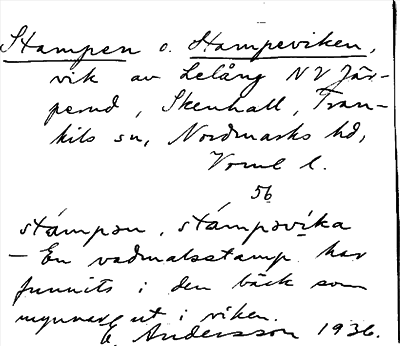 Stampen o. Stampeviken,
vik av Lelång NV Jär-
perud, Skenhall, Tran-
kils sn, Nordmarks hd,
Vrml l.
56
stámpən, stámpəvika
– En vadmalsstamp har
funnits i den bäck som
mynnar ut i viken.
E. Andersson 1936.